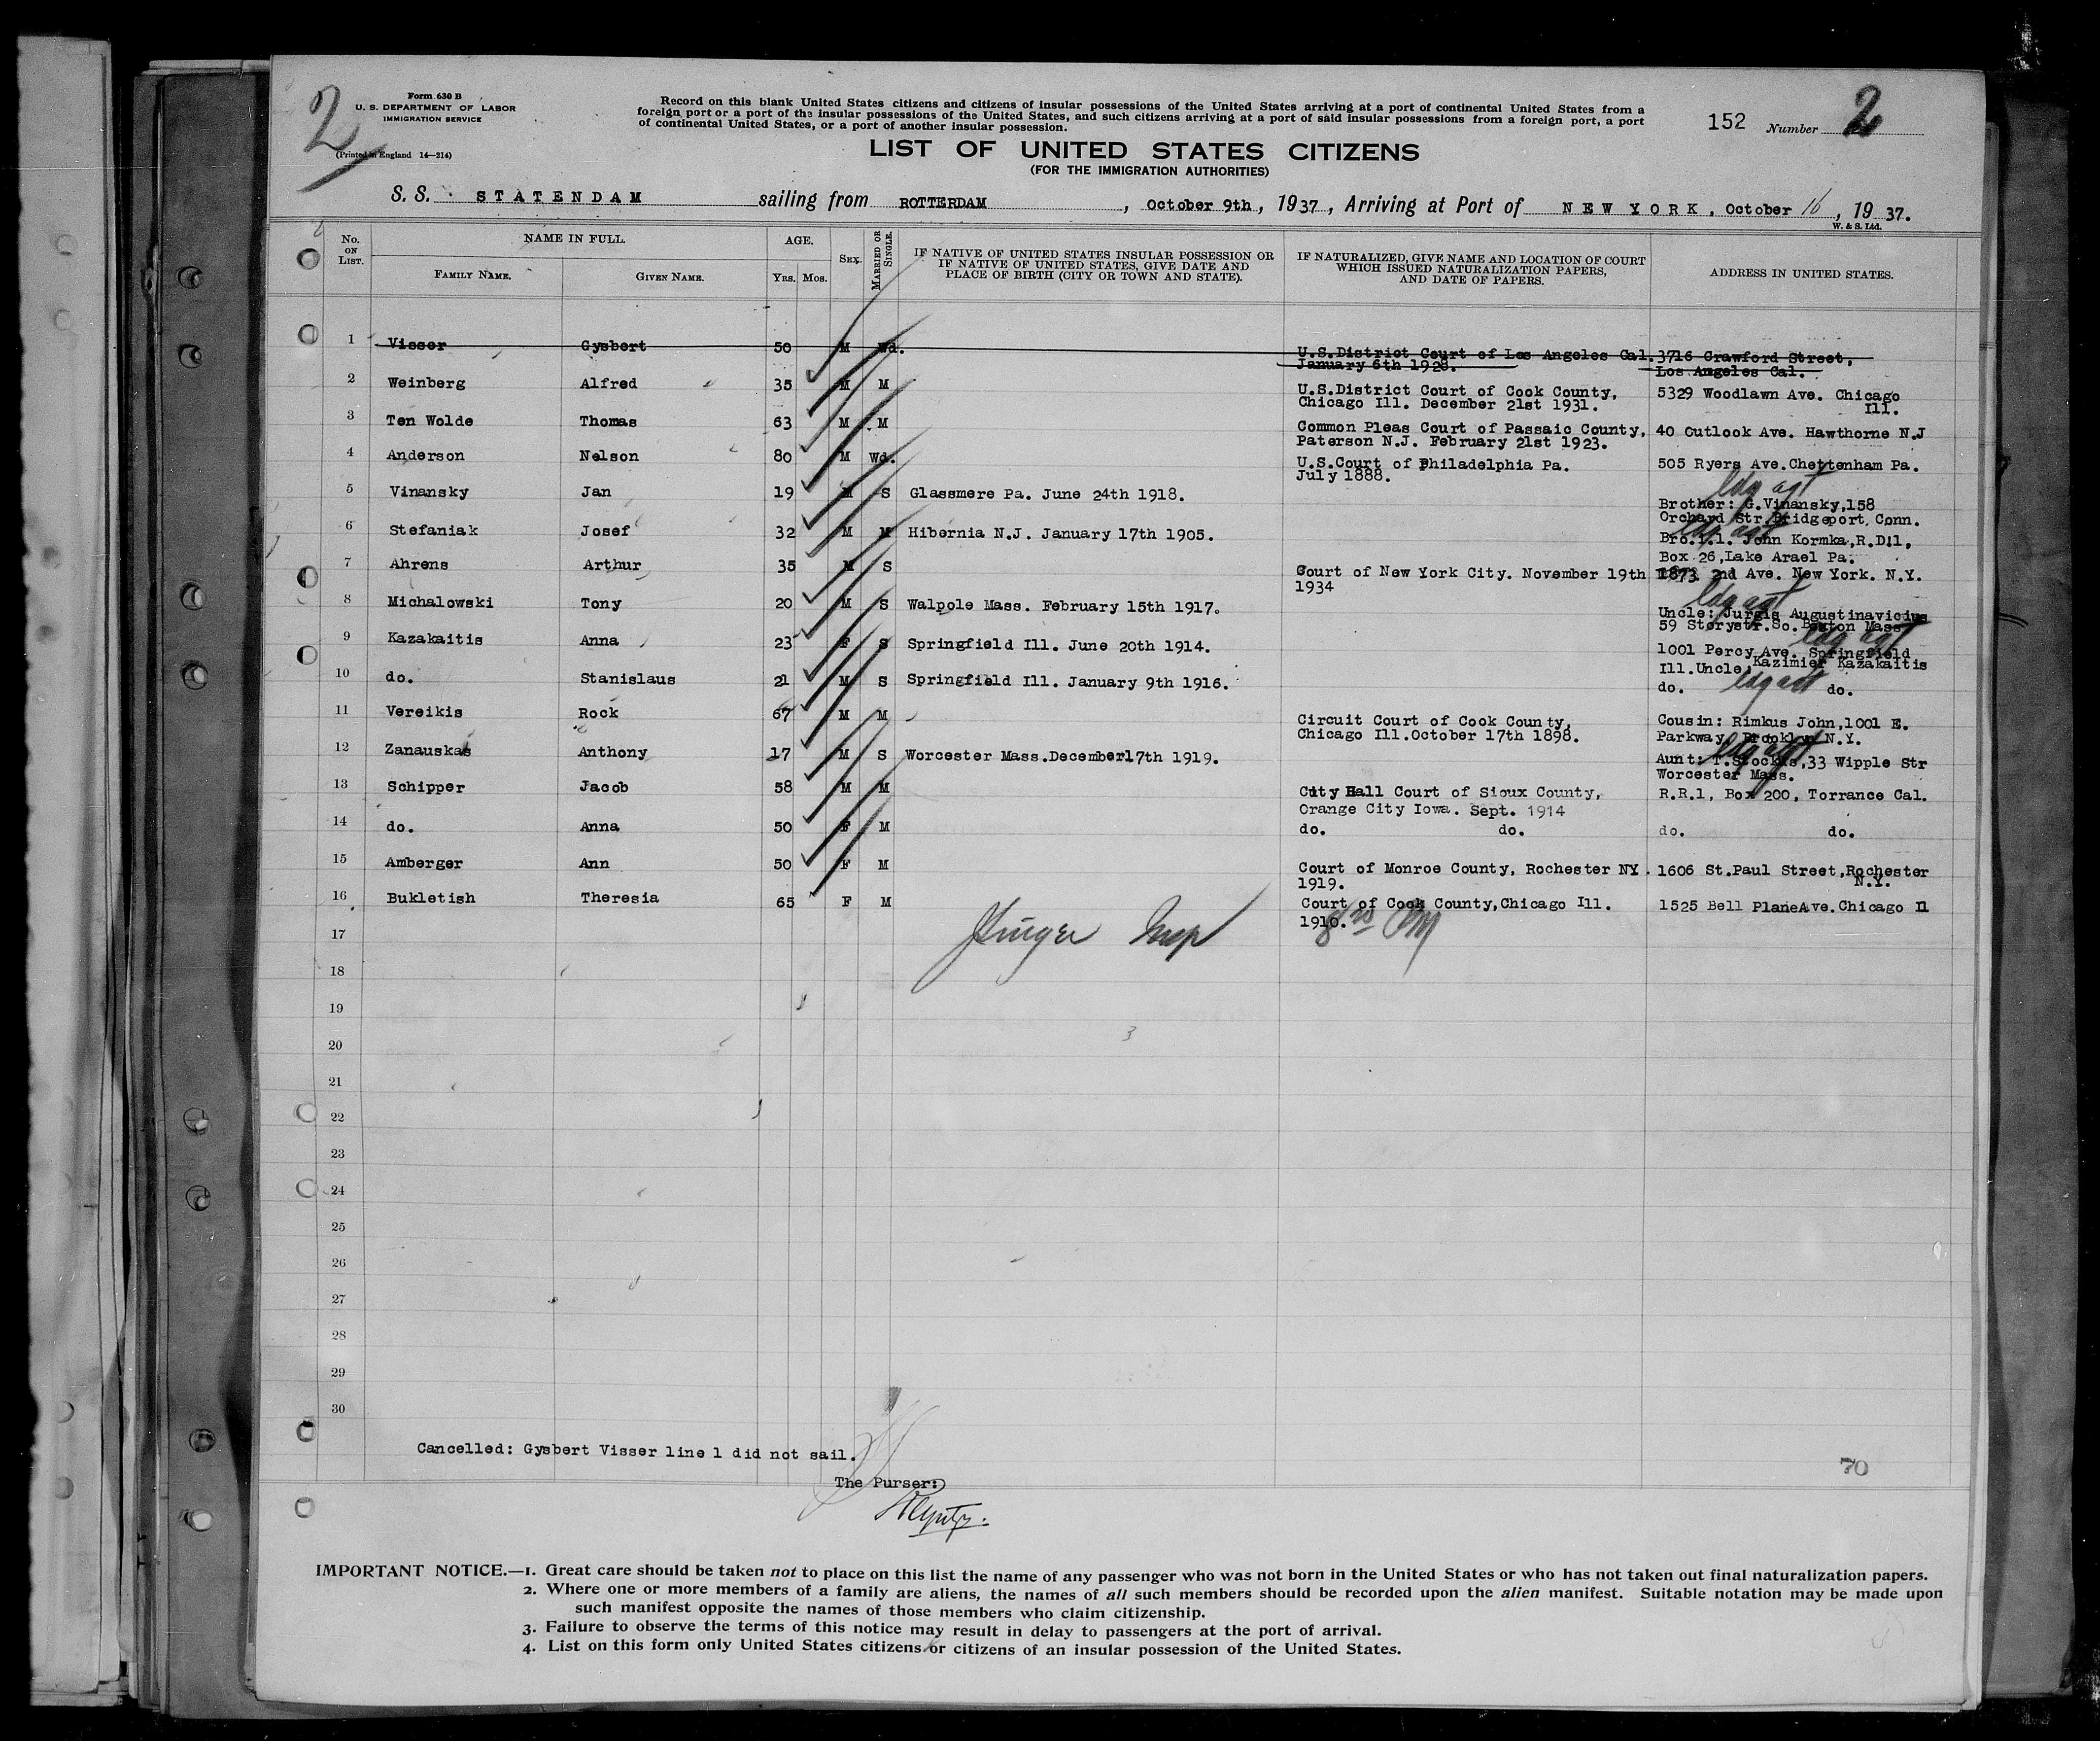 2
Form 630 B
U. S. DEPARTMENT OF LABOR
IMMIGRATION SERVICE
(Printed in England 14—214)
Record on this blank United States citizens and citizens of insular possessions of the United States arriving at a port of continental United States from a
foreign port or a port of the insular possessions of the United States, and such citizens arriving at a port of said insular possessions from a foreign port, a port
of continental United States, or a port of another insular possession.
152 Number 2
LIST OF UNITED STATES CITIZENS
(FOR THE IMMIGRATION AUTHORITIES)
S. S. STATENDAM sailing from ROTTERDAM, October 9th, 1937, Arriving at Port of NEW YORK, October 16, 1937.
W. & S. Ltd.
No. ON LIST. NAME IN FULL. AGE. SEX. MARRIED OR SINGLE. IF NATIVE OF UNITED STATES INSULAR POSSESSION OR IF NATIVE OF UNITED STATES, GIVE DATE AND PLACE OF BIRTH (CITY OR TOWN AND STATE). IF NATURALIZED, GIVE NAME AND LOCATION OF COURT WHICH ISSUED NATURALIZATION PAPERS, AND DATE OF PAPERS. ADDRESS IN UNITED STATES.
FAMILY NAME. GIVEN NAME. YRS. MOS.
1 Visser Gysbert 50 M Wd. U.S.District Court of Los Angeles Cal. 3716 Crawford Street,
January 6th 1928. Los Angeles Cal.
2 Weinberg Alfred 35 M M U.S.District Court of Cook County, 5329 Woodlawn Ave. Chicago
Chicago Ill. December 21st 1931. Ill.
3 Ten Wolde Thomas 63 M M Common Pleas Court of Passaic County, 40 Outlook Ave. Hawthorne N.J
Paterson N.J. February 21st 1923.
4 Anderson Nelson 80 M Wd. U.S.Court of Philadelphia Pa. 505 Ryers Ave.Chettenham Pa.
July 1888.
5 Vinansky Jan 19 M S Glassmere Pa. June 24th 1918. Brother: G.Vinansky,158
Orchard Str.Bridgeport, Conn.
6 Stefaniak Josef 32 M M Hibernia N.J. January 17th 1905. Bro.i.l. John Kormka,R.D.1,
Box 26,Lake Arael Pa.
7 Ahrens Arthur 35 M S Court of New York City. November 19th 1873 2nd Ave. New York. N.Y.
1934
8 Michalowski Tony 20 M S Walpole Mass. February 15th 1917. Uncle: Jurgis Augustinavicius
59 Storystr.So.Boston Mass
9 Kazakaitis Anna 23 F S Springfield Ill. June 20th 1914. 1001 Percy Ave. Springfield
Ill.Uncle,Kazimier Kazakaitis
10 do. Stanislaus 21 M S Springfield Ill. January 9th 1916. do. do.
11 Vereikis Rock 67 M M Circuit Court of Cook County, Cousin: Rimkus John,1001 E.
Chicago Ill.October 17th 1898. Parkway, Brooklyn N.Y.
12 Zanauskas Anthony 17 M S Worcester Mass.December17th 1919. Aunt: T.Stockus,33 Wipple Str
Worcester Mass.
13 Schipper Jacob 58 M M City Hall Court of Sioux County, R.R.1, Box 200, Torrance Cal.
Orange City Iowa. Sept. 1914
14 do. Anna 50 F M do. do. do. do.
15 Amberger Ann 50 F M Court of Monroe County, Rochester NY. 1606 St.Paul Street,Rochester
1919. N.Y.
16 Bukletish Theresia 65 F M Court of Cook County,Chicago Ill. 1525 Bell PlaneAve.Chicago Il
1910.
17
18
19
20
21
22
23
24
25
26
27
28
29
30
Cancelled: Gysbert Visser line 1 did not sail.
70
The Purser:
IMPORTANT NOTICE.—1. Great care should be taken not to place on this list the name of any passenger who was not born in the United States or who has not taken out final naturalization papers.
2. Where one or more members of a family are aliens, the names of all such members should be recorded upon the alien manifest. Suitable notation may be made upon
such manifest opposite the names of those members who claim citizenship.
3. Failure to observe the terms of this notice may result in delay to passengers at the port of arrival.
4. List on this form only United States citizens or citizens of an insular possession of the United States.